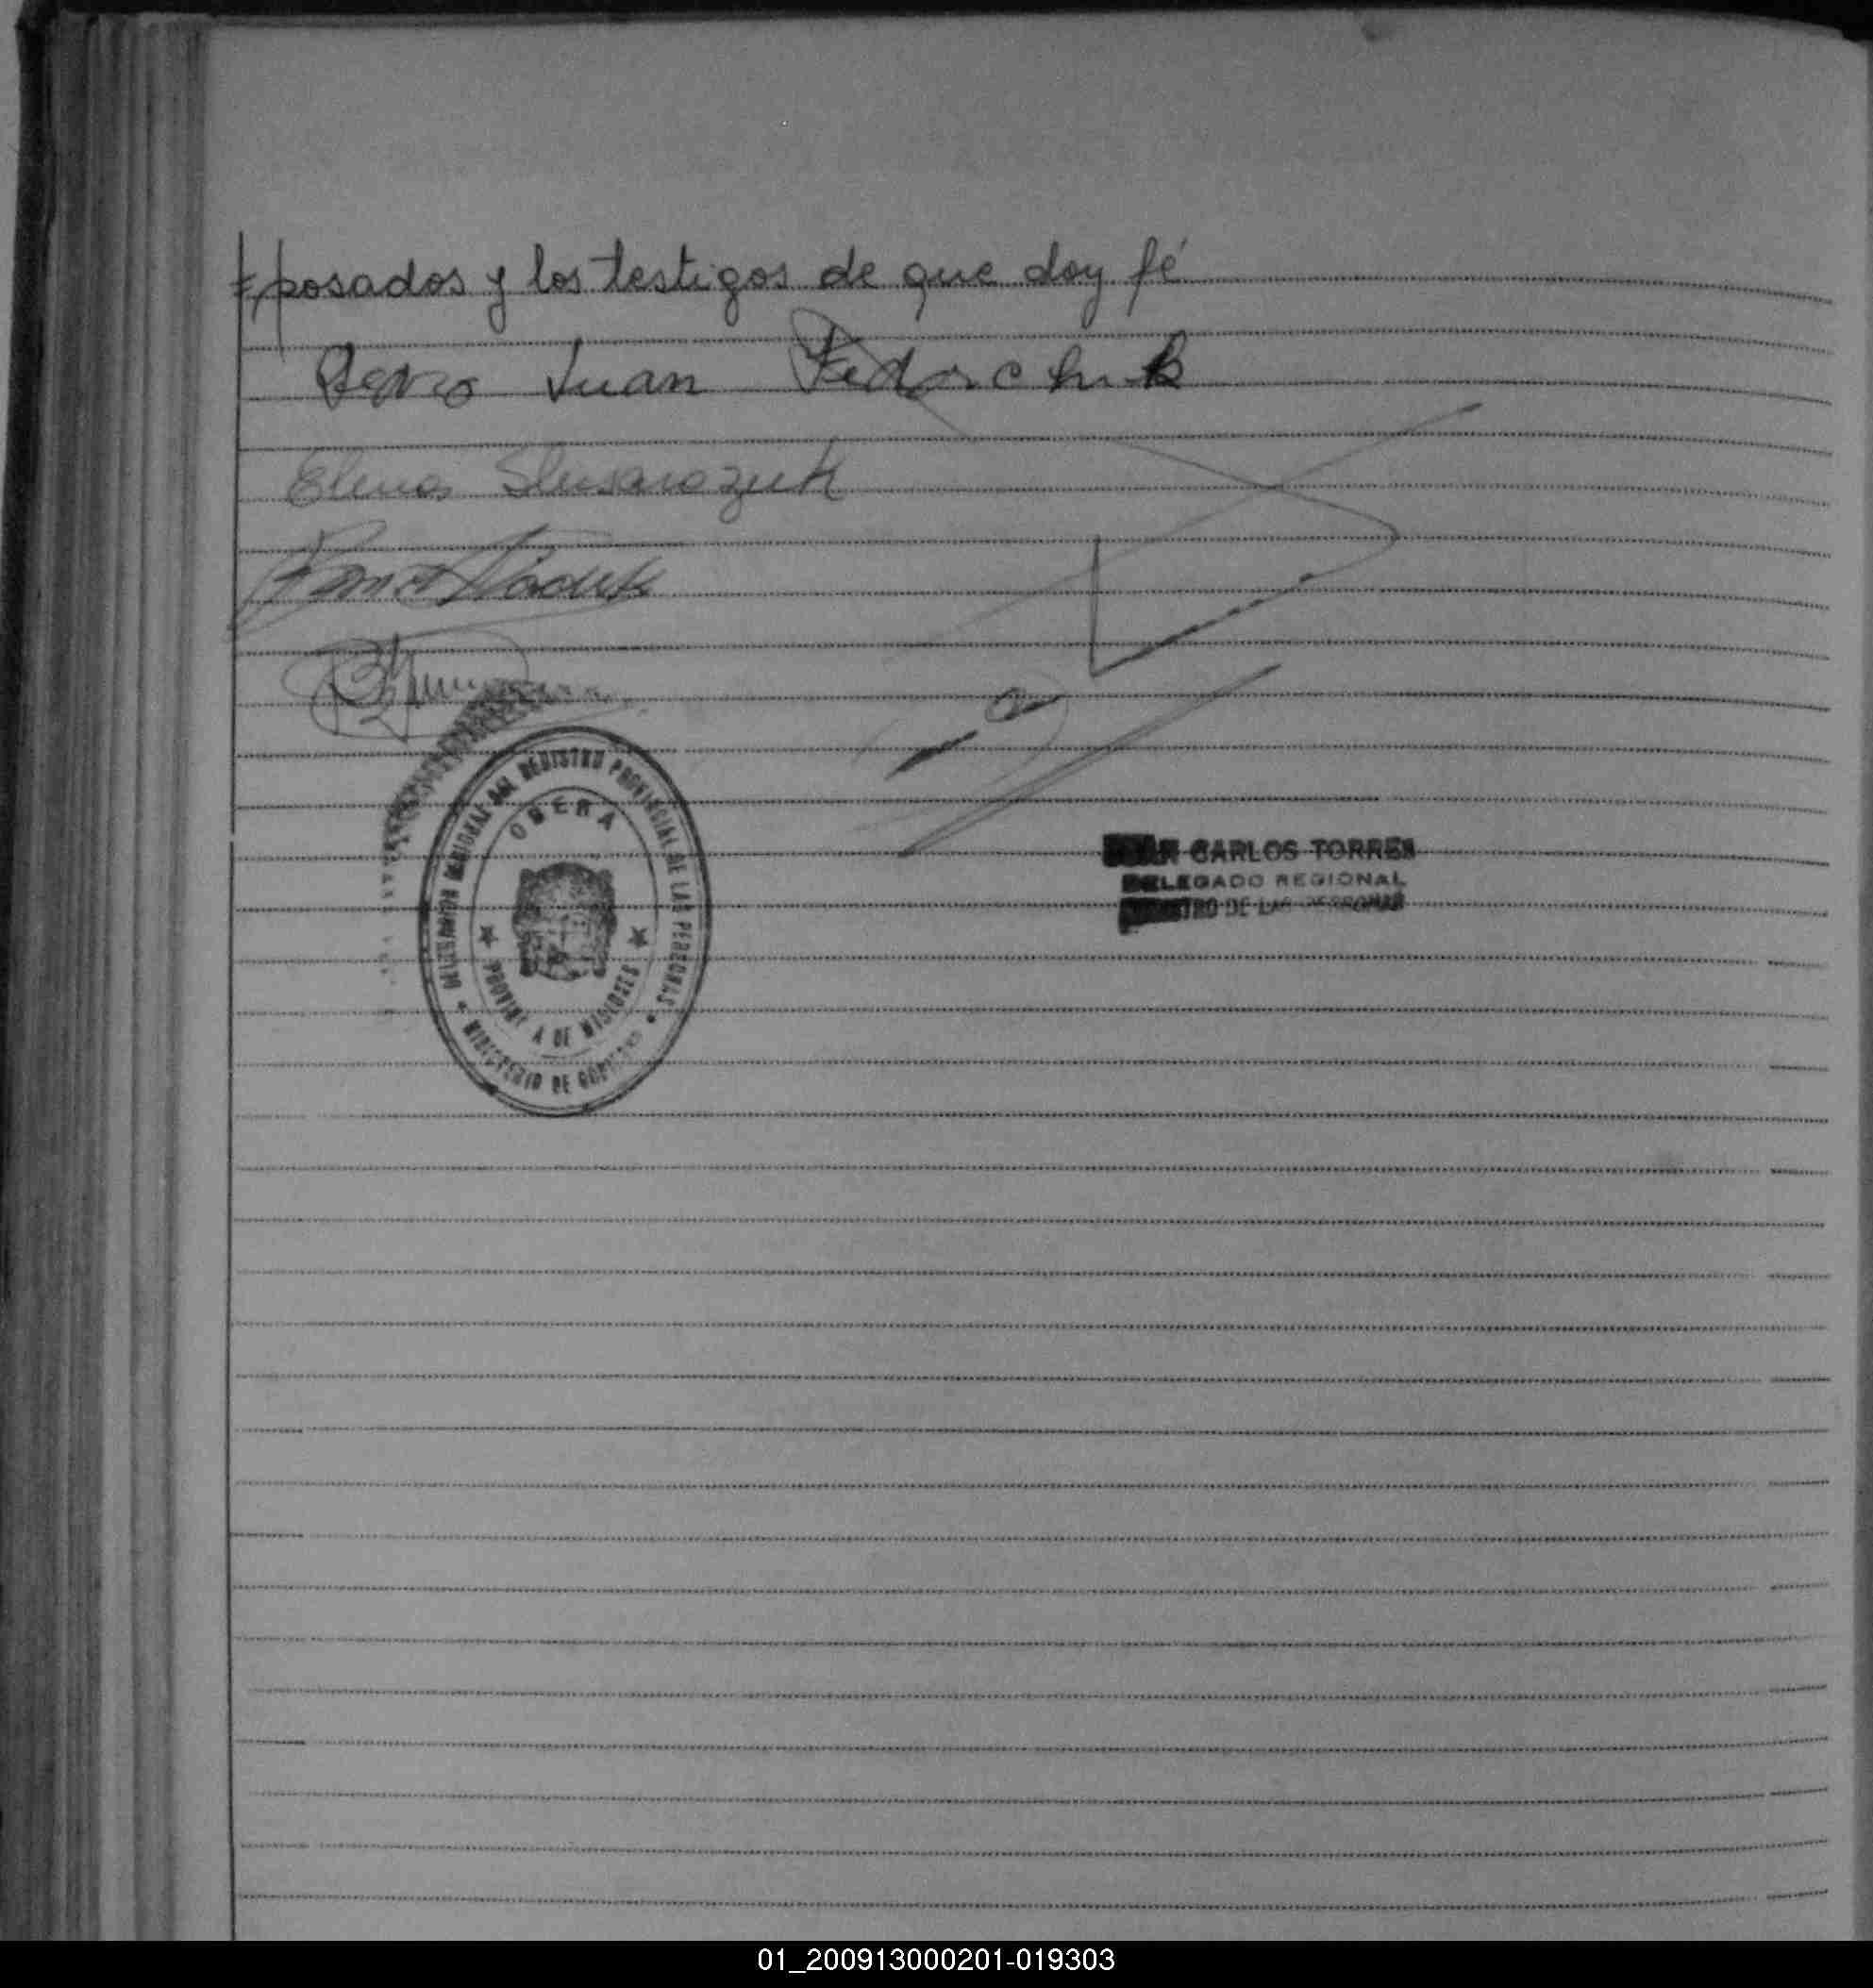 posados y los testigos de que doy fé
Pedro Juan Fedorchuk
Elena Slusarczuk
REGISTRO PROVINCIAL DE LAS PERSONAS
OBERA
PROVINCIA DE MISIONES
MINISTERIO DE GOBIERNO
CARLOS TORRES
DELEGADO REGIONAL
DE LAS PERSONAS
01_200913000201-019303